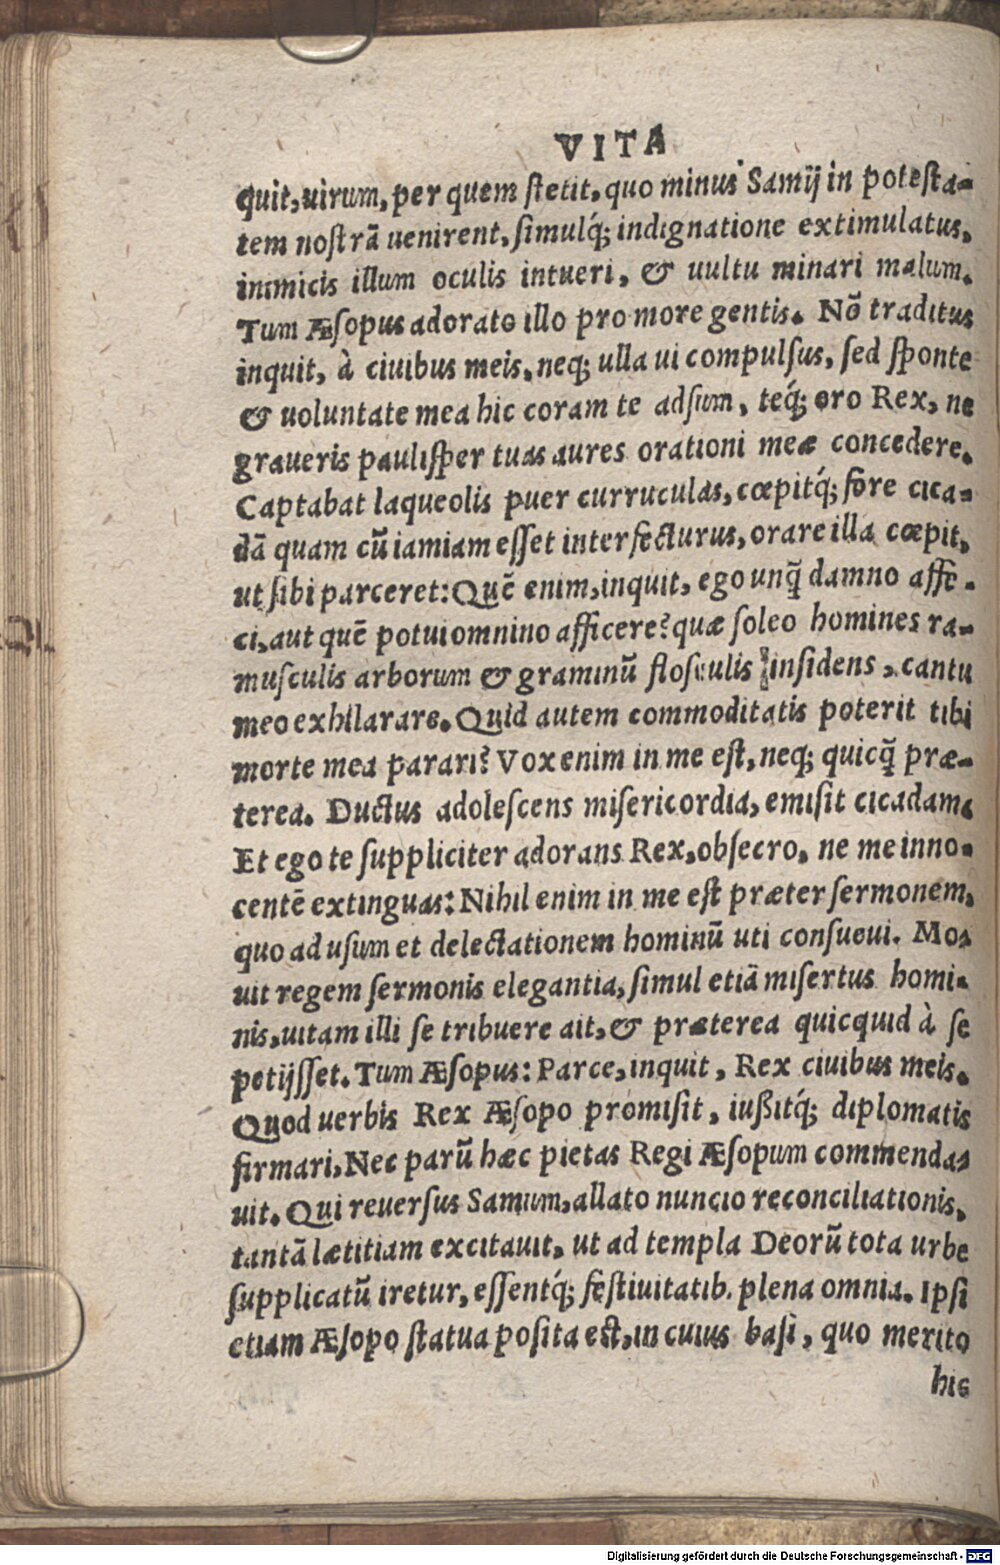 VITA
quit, uirum, per quem stetit, quo minus Samij in potesta-
tem nostrā uenirent, simulq́; indignatione extimulatus,
inimicis illum oculis intueri, & uultu minari malum.
Tum Æsopus adorato illo pro more gentis. Nō traditus
inquit, à ciuibus meis, neq; ulla ui compulsus, sed sponte
& uoluntate mea hic coram te adsum, teq́; oro Rex, ne
graueris paulisper tuas aures orationi meæ concedere.
Captabat laqueolis puer curruculas, cœpitq́; fore cica-
dā quam cū iamiam esset interfecturus, orare illa cœpit,
ut sibi parceret: Quē enim, inquit, ego unq̄ damno affe-
ci, aut quē potui omnino afficere? quæ soleo homines ra-
musculis arborum & graminū flosculis insidens, cantu
meo exhilarare. Quid autem commoditatis poterit tibi
morte mea parari? Vox enim in me est, neq; quicq̄ præ-
terea. Ductus adolescens misericordia, emisit cicadam.
Et ego te suppliciter adorans Rex, obsecro, ne me inno-
centē extinguas: Nihil enim in me est præter sermonem,
quo ad usum et delectationem hominū uti consueui. Mo-
uit regem sermonis elegantia, simul etiā misertus homi-
nis, uitam illi se tribuere ait, & præterea quicquid à se
petijsset. Tum Æsopus: Parce, inquit, Rex ciuibus meis.
Quod uerbis Rex Æsopo promisit, iußitq́; diplomatis
firmari, Nec parū hæc pietas Regi Æsopum commenda-
uit. Qui reuersus Samum, allato nuncio reconciliationis,
tantā lætitiam excitauit, ut ad templa Deorū tota urbe
supplicatū iretur, essentq́; festiuitatib. plena omnia. Ipsi
etiam Æsopo statua posita est, in cuius basi, quo merito
hic
Digitalisierung gefördert durch die Deutsche Forschungsgemeinschaft - DFG